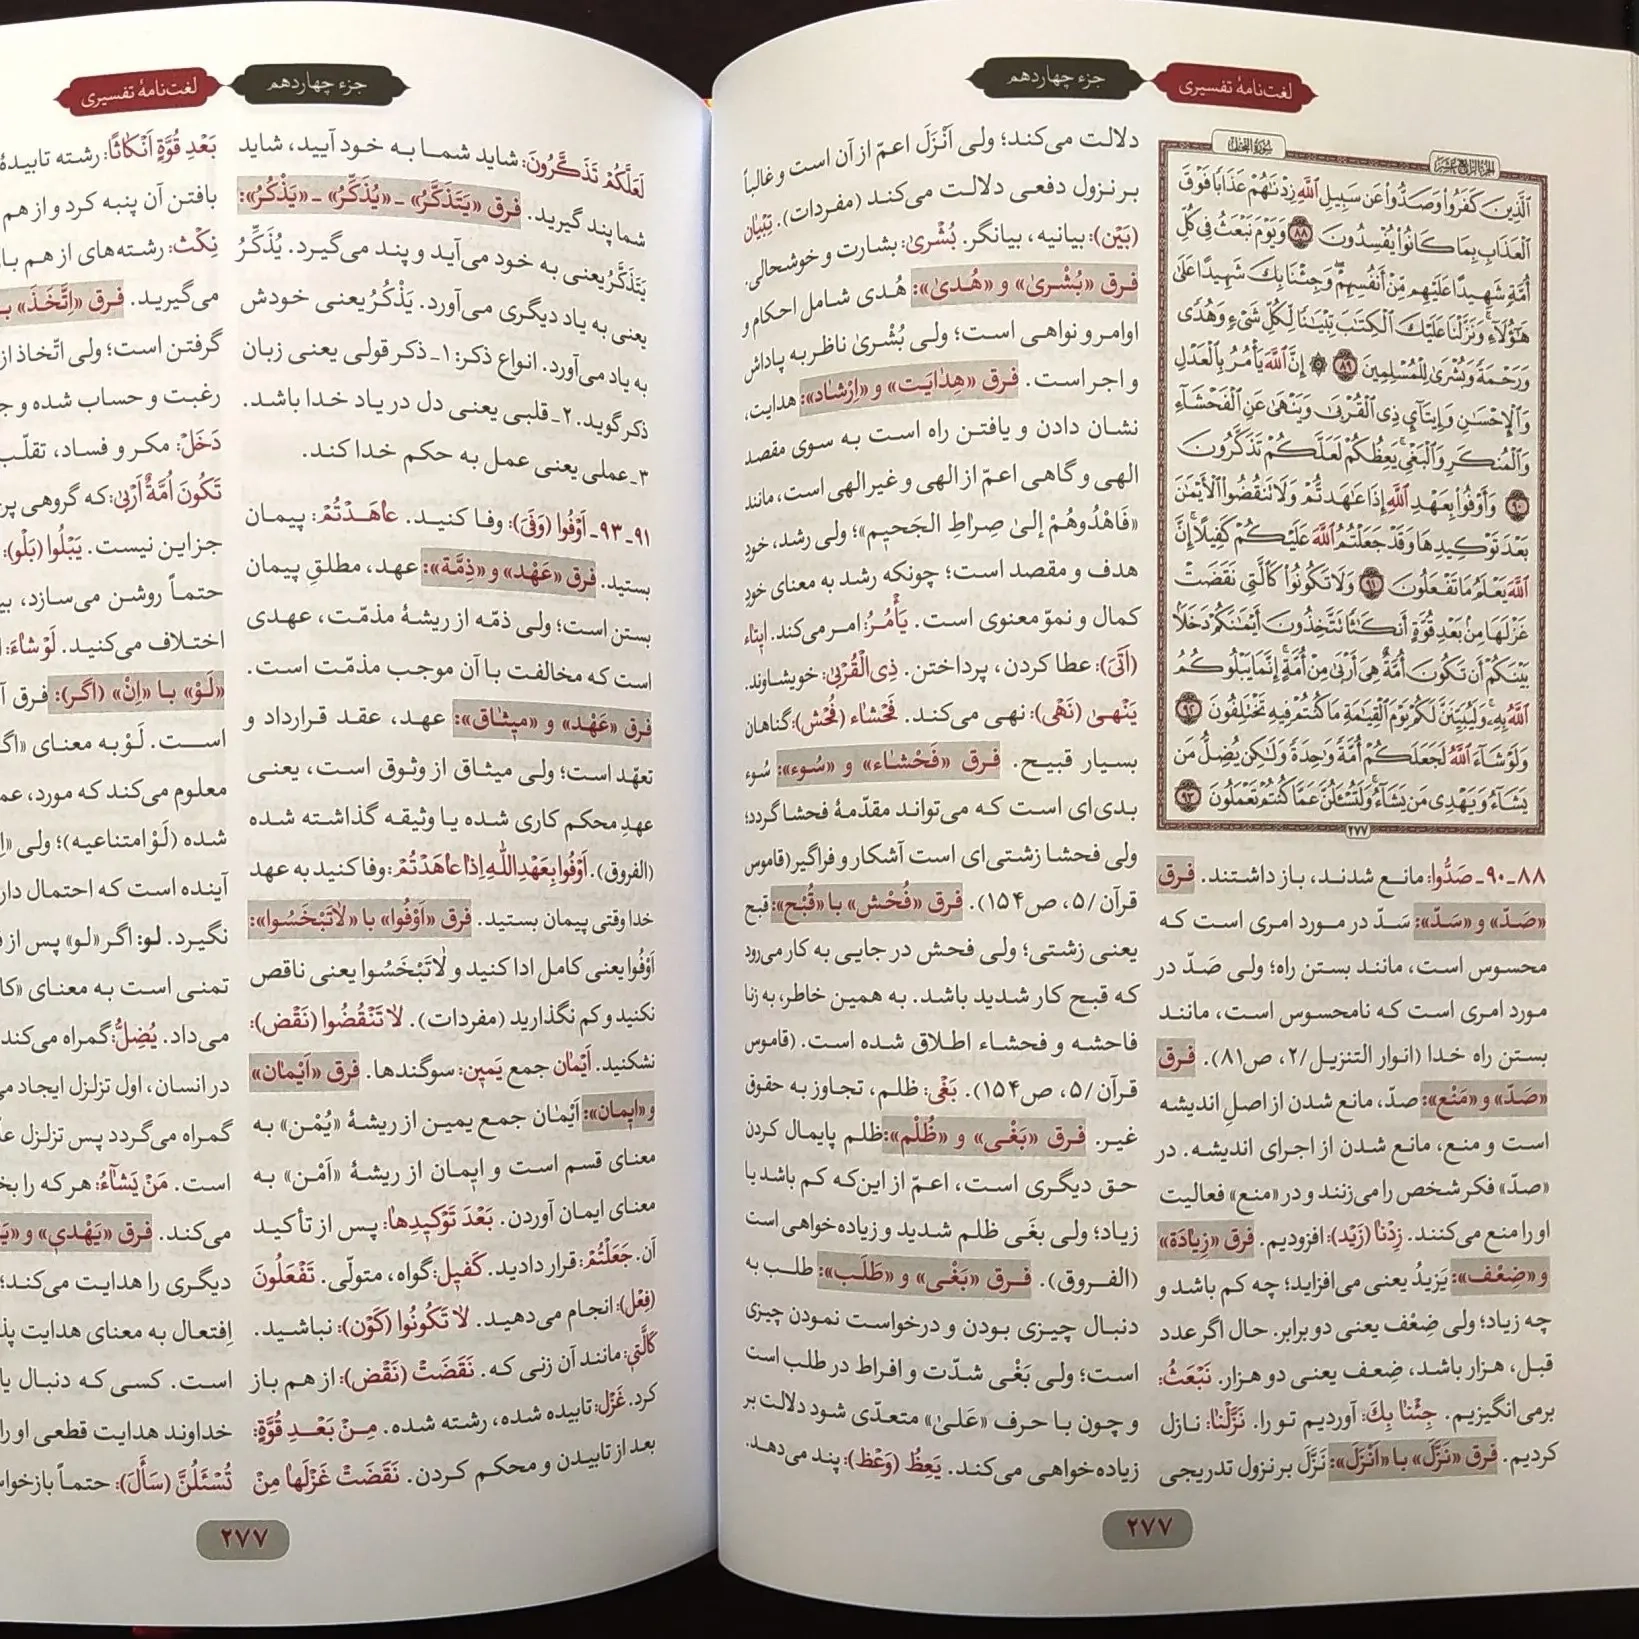 لغت‌نامهٔ تفسیری
جزء چهاردهم
سورة النحل
الجزء الرابع عشر
ٱلَّذِينَ كَفَرُواْ وَصَدُّواْ عَن سَبِيلِ ٱللَّهِ زِدۡنَٰهُمۡ عَذَابٗا فَوۡقَ
ٱلۡعَذَابِ بِمَا كَانُواْ يُفۡسِدُونَ ٨٨ وَيَوۡمَ نَبۡعَثُ فِي كُلِّ
أُمَّةٖ شَهِيدًا عَلَيۡهِم مِّنۡ أَنفُسِهِمۡۖ وَجِئۡنَا بِكَ شَهِيدًا عَلَىٰ
هَٰٓؤُلَآءِۚ وَنَزَّلۡنَا عَلَيۡكَ ٱلۡكِتَٰبَ تِبۡيَٰنٗا لِّكُلِّ شَيۡءٖ وَهُدٗى
وَرَحۡمَةٗ وَبُشۡرَىٰ لِلۡمُسۡلِمِينَ ٨٩ ۞ إِنَّ ٱللَّهَ يَأۡمُرُ بِٱلۡعَدۡلِ
وَٱلۡإِحۡسَٰنِ وَإِيتَآيِٕ ذِي ٱلۡقُرۡبَىٰ وَيَنۡهَىٰ عَنِ ٱلۡفَحۡشَآءِ
وَٱلۡمُنكَرِ وَٱلۡبَغۡيِۚ يَعِظُكُمۡ لَعَلَّكُمۡ تَذَكَّرُونَ
٩٠ وَأَوۡفُواْ بِعَهۡدِ ٱللَّهِ إِذَا عَٰهَدتُّمۡ وَلَا تَنقُضُواْ ٱلۡأَيۡمَٰنَ
بَعۡدَ تَوۡكِيدِهَا وَقَدۡ جَعَلۡتُمُ ٱللَّهَ عَلَيۡكُمۡ كَفِيلًاۚ إِنَّ
ٱللَّهَ يَعۡلَمُ مَا تَفۡعَلُونَ ٩١ وَلَا تَكُونُواْ كَٱلَّتِي نَقَضَتۡ
غَزۡلَهَا مِنۢ بَعۡدِ قُوَّةٍ أَنكَٰثٗا تَتَّخِذُونَ أَيۡمَٰنَكُمۡ دَخَلَۢا
بَيۡنَكُمۡ أَن تَكُونَ أُمَّةٌ هِيَ أَرۡبَىٰ مِنۡ أُمَّةٍۚ إِنَّمَا يَبۡلُوكُمُ
ٱللَّهُ بِهِۦۚ وَلَيُبَيِّنَنَّ لَكُمۡ يَوۡمَ ٱلۡقِيَٰمَةِ مَا كُنتُمۡ فِيهِ تَخۡتَلِفُونَ ٩٢
وَلَوۡ شَآءَ ٱللَّهُ لَجَعَلَكُمۡ أُمَّةٗ وَٰحِدَةٗ وَلَٰكِن يُضِلُّ مَن
يَشَآءُ وَيَهۡدِي مَن يَشَآءُۚ وَلَتُسۡـَٔلُنَّ عَمَّا كُنتُمۡ تَعۡمَلُونَ ٩٣
٢٧٧
۸۸ـ۹۰ـ صَدُّوا: مانع شدند، باز داشتند. فرق
«صَدّ» و «سَدّ»: سَدّ در مورد امری است که
محسوس است، مانند بستن راه؛ ولی صَدّ در
مورد امری است که نامحسوس است، مانند
بستن راه خدا (انوار التنزیل/۲، ص۸۱). فرق
«صَدّ» و «مَنْع»: صدّ، مانع شدن از اصلِ اندیشه
است و منع، مانع شدن از اجرای اندیشه. در
«صدّ» فکر شخص را می‌زنند و در «منع» فعالیت
او را منع می‌کنند. زِدْنا (زَیْد): افزودیم. فرق «زِیادَة»
و «ضِعْف»: یَزیدُ یعنی می‌افزاید؛ چه کم باشد و
چه زیاد؛ ولی ضِعْف یعنی دو برابر. حال اگر عدد
قبل، هزار باشد، ضِعف یعنی دو هزار. نَبْعَثُ:
برمی‌انگیزیم. جِئْنا بِكَ: آوردیم تو را. نَزَّلْنا: نازل
کردیم. فرق «نَزَّلَ» با «اَنْزَلَ»: نَزَّلَ بر نزول تدریجی
دلالت می‌کند؛ ولی اَنْزَلَ اعمّ از آن است و غالباً
بر نزول دفعی دلالت می‌کند (مفردات). تِبْیان
(بَیْن): بیانیه، بیانگر. بُشْریٰ: بشارت و خوشحالی.
فرق «بُشْریٰ» و «هُدیٰ»: هُدی شامل احکام و
اوامر و نواهی است؛ ولی بُشْریٰ ناظر به پاداش
و اجر است. فرق «هِدایَت» و «اِرْشاد»: هدایت،
نشان دادن و یافتن راه است به سوی مقصد
الهی و گاهی اعمّ از الهی و غیرالهی است، مانند
«فَاهْدُوهُمْ إلیٰ صِراطِ الجَحیمِ»؛ ولی رشد، خودِ
هدف و مقصد است؛ چونکه رشد به معنای خودِ
کمال و نموّ معنوی است. یَأْمُرُ: امر می‌کند. ایتاء
(اَتَیَ): عطا کردن، پرداختن. ذِی الْقُرْبیٰ: خویشاوند.
یَنْهیٰ (نَهْی): نهی می‌کند. فَحْشاء (فُحْش): گناهان
بسیار قبیح. فرق «فَحْشاء» و «سُوء»: سُوء
بدی‌ای است که می‌تواند مقدّمهٔ فحشا گردد؛
ولی فحشا زشتی‌ای است آشکار و فراگیر (قاموس
قرآن/۵، ص۱۵۴). فرق «فُحْش» با «قُبْح»: قبح
یعنی زشتی؛ ولی فحش در جایی به کار می‌رود
که قبح کار شدید باشد. به همین خاطر، به زنا
فاحشه و فحشاء اطلاق شده است. (قاموس
قرآن/۵، ص۱۵۴). بَغْی: ظلم، تجاوز به حقوق
غیر. فرق «بَغْی» و «ظُلْم»: ظلم پایمال کردن
حق دیگری است، اعمّ از این‌که کم باشد یا
زیاد؛ ولی بغَی ظلم شدید و زیاده‌خواهی است
(الفروق). فرق «بَغْی» و «طَلَب»: طلب به
دنبال چیزی بودن و درخواست نمودن چیزی
است؛ ولی بَغْی شدّت و افراط در طلب است
و چون با حرف «عَلیٰ» متعدّی شود دلالت بر
زیاده‌خواهی می‌کند. یَعِظُ (وَعْظ): پند می‌دهد.
۲۷۷
جزء چهاردهم
لغت‌نامهٔ تفسیری
لَعَلَّکُمْ تَذَکَّرُونَ: شاید شما به خود آیید، شاید
شما پند گیرید. فرق «یَتَذَکَّرُ» ـ «یُذَکِّرُ» ـ «یَذْکُرُ»:
یَتَذَکَّرُ یعنی به خود می‌آید و پند می‌گیرد. یُذَکِّرُ
یعنی به یاد دیگری می‌آورد. یَذْکُرُ یعنی خودش
به یاد می‌آورد. انواع ذکر: ۱ـ ذکر قولی یعنی زبان
ذکر گوید. ۲ـ قلبی یعنی دل در یاد خدا باشد.
۳ـ عملی یعنی عمل به حکم خدا کند.
۹۱ـ۹۳ـ اَوْفُوا (وَفَیَ): وفا کنید. عاهَدْتُمْ: پیمان
بستید. فرق «عَهْد» و «ذِمَّة»: عهد، مطلقِ پیمان
بستن است؛ ولی ذمّه از ریشهٔ مذمّت، عهدی
است که مخالفت با آن موجب مذمّت است.
فرق «عَهْد» و «میثاق»: عهد، عقد قرارداد و
تعهّد است؛ ولی میثاق از وثوق است، یعنی
عهدِ محکم کاری شده یا وثیقه گذاشته شده
(الفروق). اَوْفُوا بِعَهْدِ اللّٰهِ اِذا عاهَدْتُمْ: وفا کنید به عهد
خدا وقتی پیمان بستید. فرق «اَوْفُوا» با «لاتَبْخَسُوا»:
اَوْفُوا یعنی کامل ادا کنید و لاتَبْخَسُوا یعنی ناقص
نکنید و کم نگذارید (مفردات). لاتَنْقُضُوا (نَقْض):
نشکنید. اَیْمان جمع یَمین: سوگندها. فرق «اَیْمان»
و «ایمان»: اَیْمٰان جمع یمین از ریشهٔ «یُمْن» به
معنای قسم است و ایمان از ریشهٔ «اَمْن» به
معنای ایمان آوردن. بَعْدَ تَوْکیدِها: پس از تأکید
آن. جَعَلْتُمْ: قرار دادید. کَفیل: گواه، متولّی. تَفْعَلُونَ
(فِعْل): انجام می‌دهید. لا تَکُونُوا (کَوْن): نباشید.
کَالَّتی: مانند آن زنی که. نَقَضَتْ (نَقْض): از هم باز
کرد. غَزْل: تابیده شده، رشته شده. مِنْ بَعْدِ قُوَّةٍ:
بعد از تابیدن و محکم کردن. نَقَضَتْ غَزْلَها مِنْ
بَعْدِ قُوَّةٍ اَنْکاثًا: رشته تابیدهٔ
بافتن آن پنبه کرد و از هم
نِکْث: رشته‌های از هم باز
می‌گیرید. فرق «اِتَّخَذَ»
گرفتن است؛ ولی اتّخاذ از
رغبت و حساب شده و
دَخَل: مکر و فساد، تقلّب
تَکُونَ اُمَّةٌ اَرْبیٰ: که گروهی
جز این نیست. یَبْلُوا (بَلْو):
حتماً روشن می‌سازد،
اختلاف می‌کنید. لَوْ شاءَ:
«لَوْ» با «اِنْ» (اگر): فرق
است. لَوْ به معنای
معلوم می‌کند که مورد،
شده (لَوْ امتناعیه)؛ ولی
آینده است که احتمال
نگیرد. لو: اگر «لو» پس از
تمنی است به معنای
می‌داد. یُضِلُّ: گمراه می‌کند
در انسان، اول تزلزل ایجاد
گمراه می‌گردد پس تزلزل
است. مَنْ یَشآءُ: هر که را
می‌کند. فرق «یَهْدی» و
دیگری را هدایت می‌کند؛
اِفتعال به معنای هدایت
است. کسی که دنبال
خداوند هدایت قطعی او را
تُسْئَلُنَّ (سَأَلَ): حتماً
۲۷۷